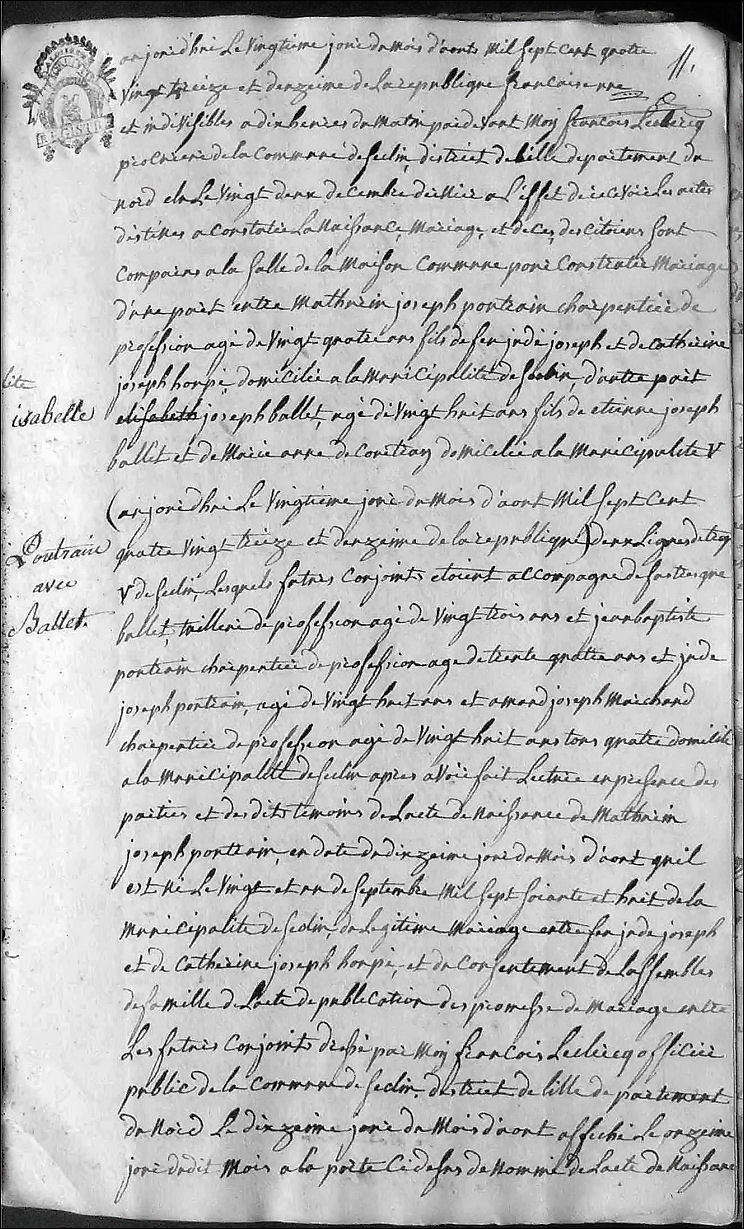 11.
aujourd'hui Le Vingtieme jour du mois d'aouts Mil Sept Cent quatre
Vingt treize et deuxeime de La republique francoise une
et indivisibles a dix heures du Matin pardevant Moy francois Leclercq
procureur de la Commune de Seclin, district de Lille departement du
nord elu Le Vingt deux decembre dernier a L'effet de recevoir Les actes
destines a constater La Naissance, Mariage, et deces, des Citoiens Sont
Comparus a la Salle de la Maison Commune pour Constater Mariage
d'une part entre Mathurin joseph poutrain charpentier de
profession age de Vingt quatre ans fils de feu jude joseph et de catherine
joseph houpé, domicilie a la Municipalité de Seclin d'autre part
elisabeth joseph ballet, agé de Vingt huit ans fils de etienne joseph
isabelle
ballet et de Marie anne de domicilie a la Municipalite V
(aujourd'hui Le Vingtieme jour du Mois d'aout Mil Sept Cent
quatre Vingt treize et deuxeime de la republique) deux Lignes de trop
Poutrain
avec
Ballet.
V de Seclin, Lesquels futurs Conjoints etoient accompagne de
ballet, tailleur de profession agé de Vingt trois ans et jean baptiste
poutrain charpentier de profession age de trente quatre ans et jude
joseph poutrain, agé de Vingt huit ans et amand joseph Marchand
charpentier de profession agé de Vingt huit ans tous quatre domicilié
a la Municipalité de Seclin apres avoir fait Lecture en presence des
parties et des dits temoins de Lacte de Naissance de Mathurin
joseph poutrain, en date du deuxeime jour du Mois d'aout quil
est né Le Vingt et un de Septembre Mil Sept Soiante et huit de la
Municipalité de Seclin, du Legitime Mariage entre feu jude joseph
et de Catherine joseph houpé, et du Consentement de Lassembles
de famille de Lacte de publication des promesse de Mariage entre
Les futurs Conjoints dressé par Moy francois Leclercq officier
public de la Commune de Seclin, district de Lille departement
du Nord Le deuxeime jour du Mois d'aout affiché Le onzeime
jour dudit Mois a la porte Ci desus de Nommé de Lacte de Naissance